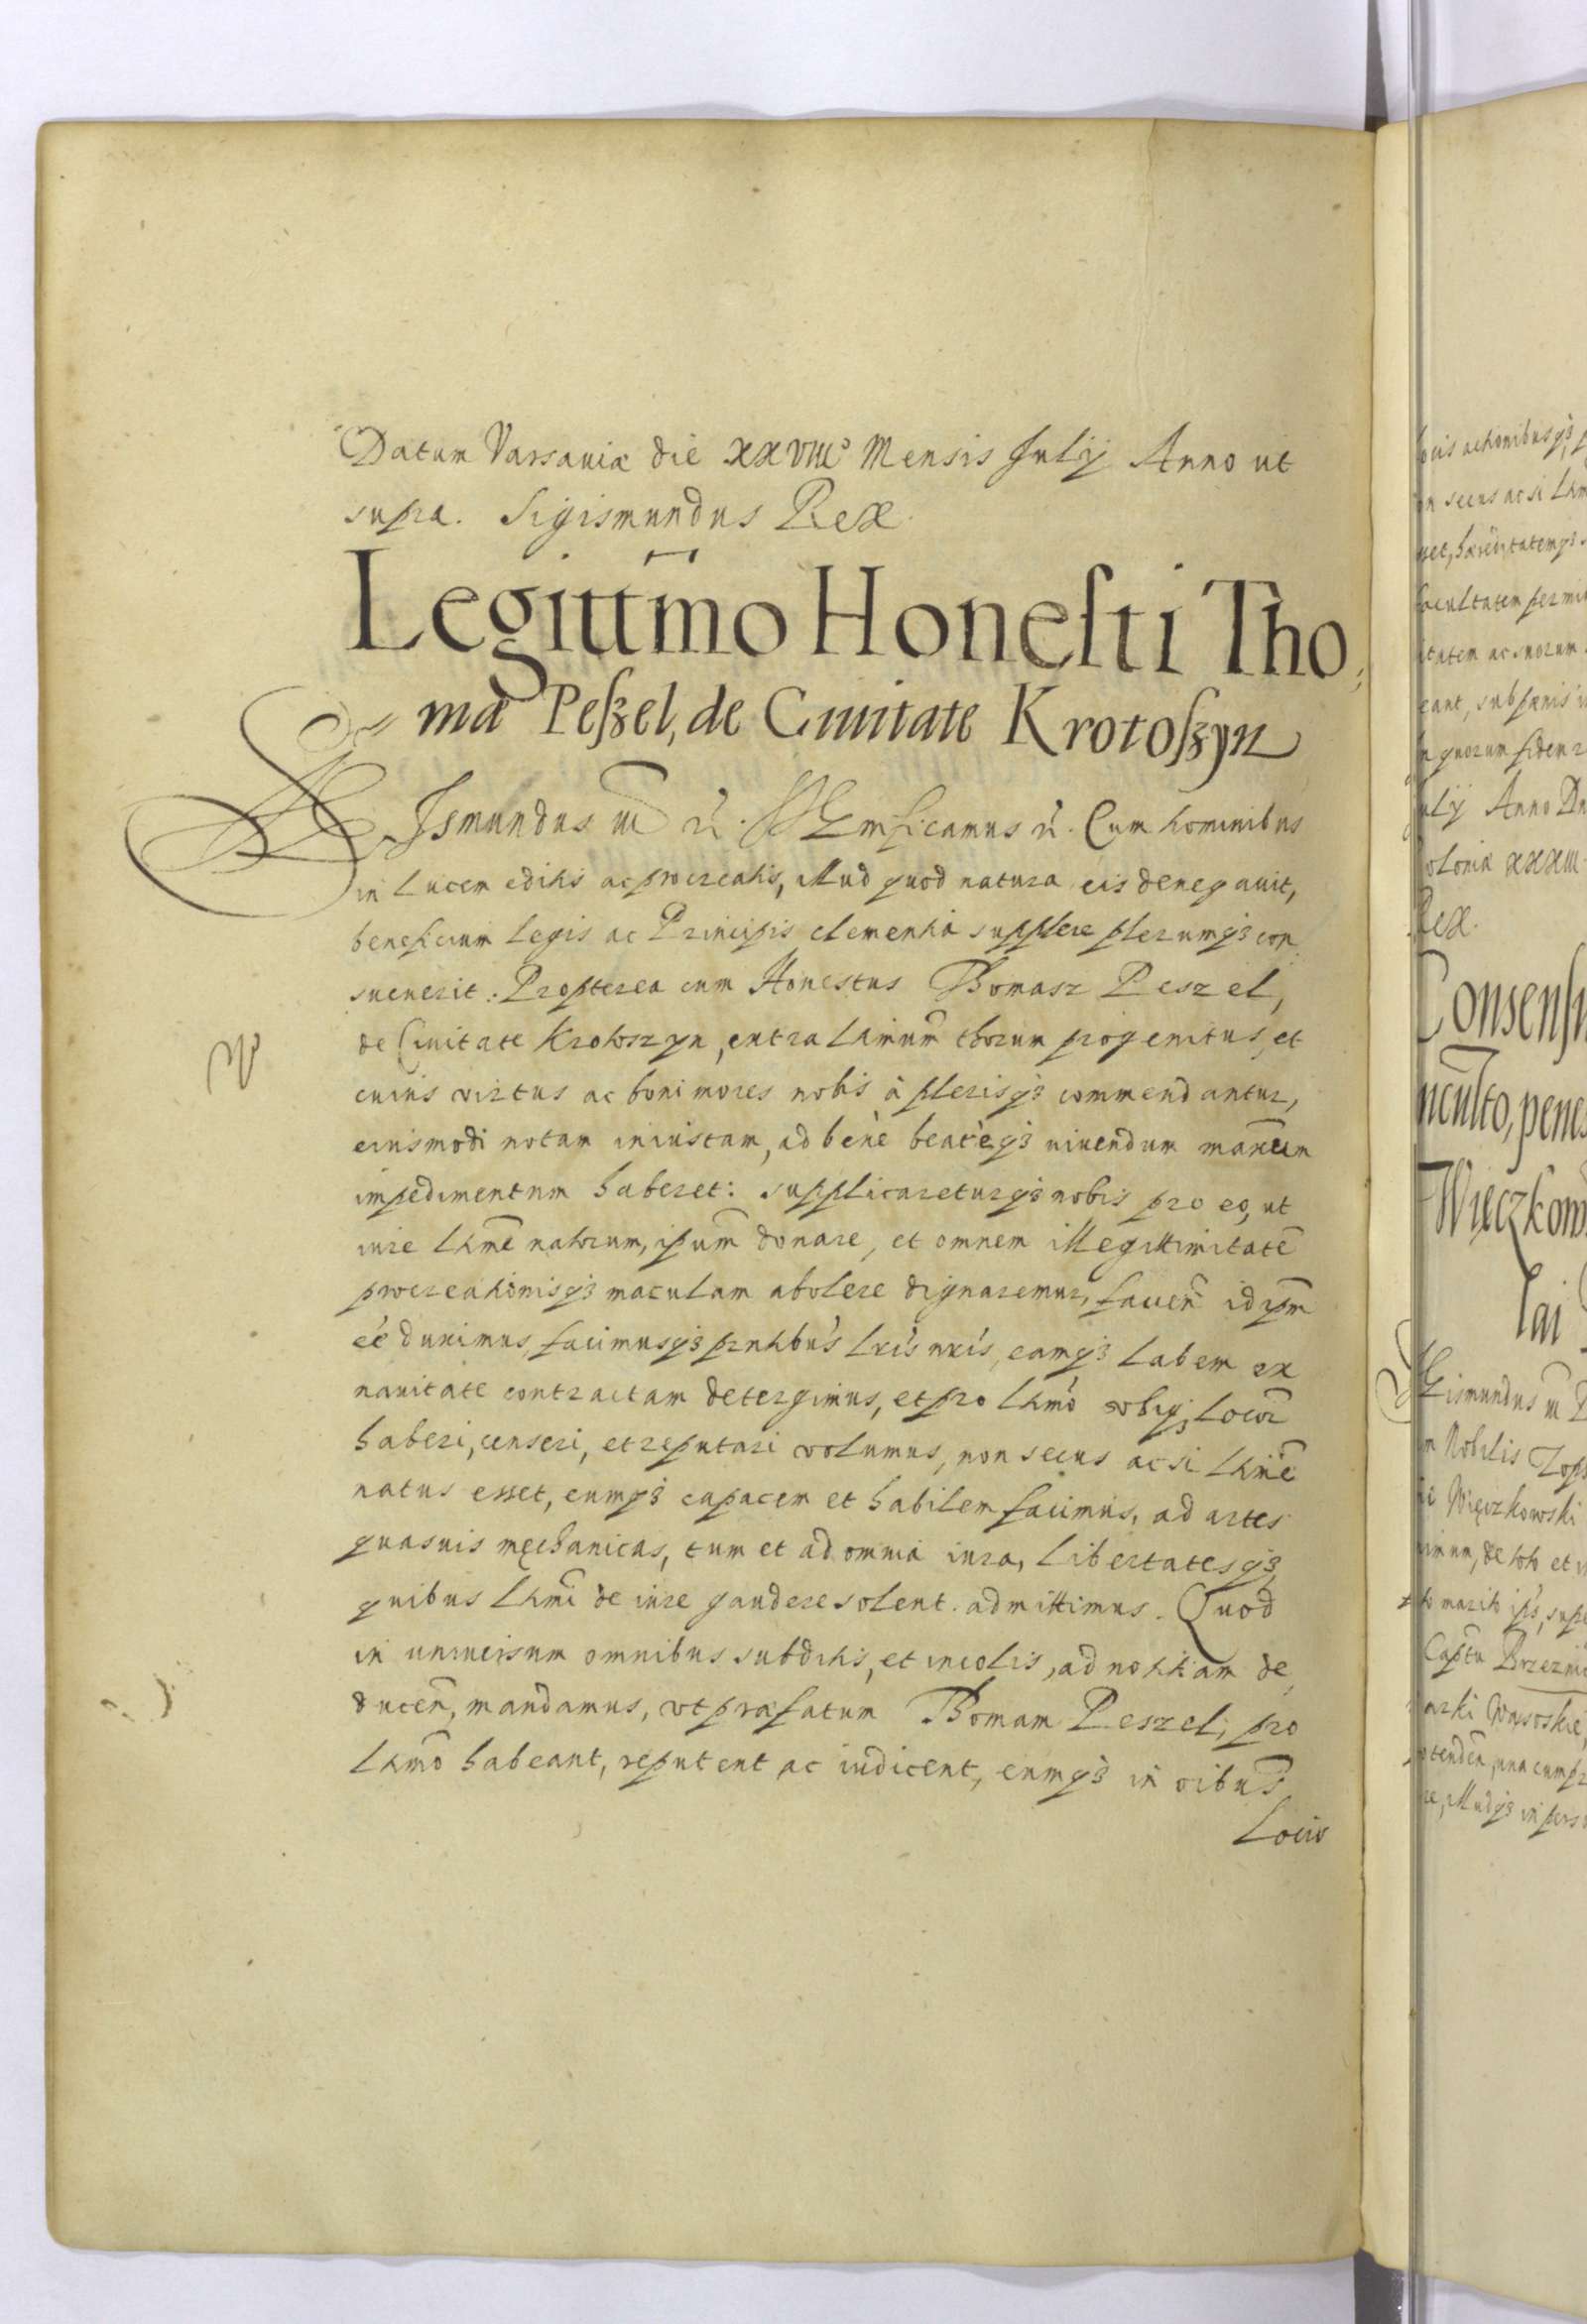 Datum Varsaviæ die XXVIII° Mensis Julij Anno ut
supra. Sigismundus Rex.
Legittimõ Honesti Tho
mæ Peßel, de Ciuitate Krotoßyn
Sigismundus III R. Significamus n. Cum hominibus
in lucem editis ac procreatis, illud quod natura eis denegauit,
beneficium legis ac Principis clementia supplere plerumq3 con
sueuerit: Propterea cum Honestus Thomasz Peszel,
de Ciuitate Krotoszyn, extra l̃timum thorum progenitus, et
cuius virtus ac boni mores nobis à plerisq3 commendantur,
eiusmodi notam iniustam, ad bene beateq3 uiuendum
impedimentum haberet: supplicareturq3 nobis pro eo, ut
iure l̃tmẽ natorum, ipsum donare, et omnem illegittimitatẽ
procreationisq3 maculam abolere dignaremur, fauen̄
dunimus, facimusq3 pñtibus l̃ris ñris, eamq3 labem ex
nauitate contractam detergimus, et pro l̃tmõ vbiq3 locor̃
haberi, censeri, et reputari volumus, non secus ac si l̃tmẽ
natus esset, eumq3 capacem et habilem facimus, ad artes
quasuis mechanicas, tum et ad omnia iura, libertatesq3
quibus l̃tmi de iure gaudere solent admittimus. Quod
in uniuersum omnibus subditis, et incolis, ad notitiam de
ducen̄, mandamus, vt præfatum Thomam Peszel, pro
l̃tmõ habeant, reputent ac iudicent, eumq3 in oĩbus
Locis